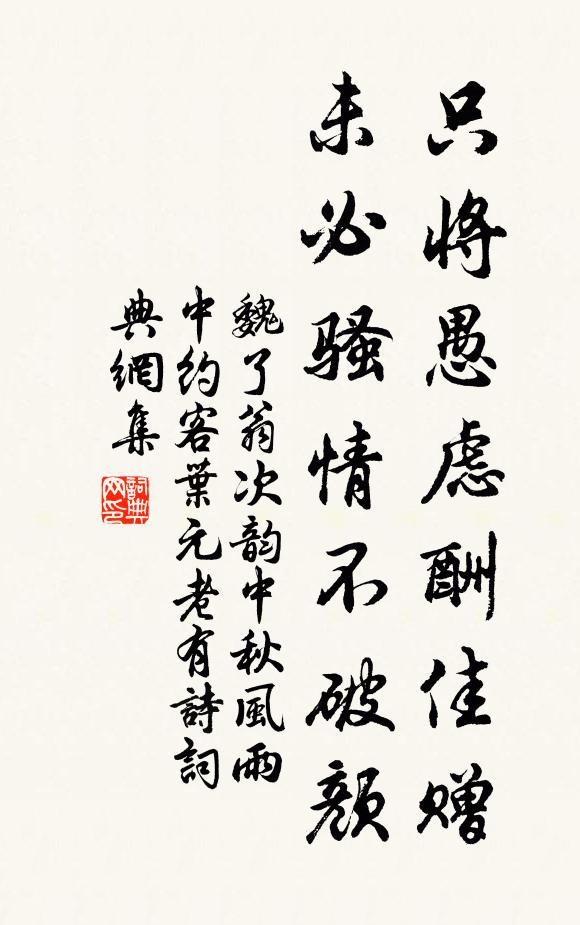 只將愚慮酬佳贈
未必騷情不破顏
魏了翁次韵中秋風雨
中約客葉元老有詩詞
典網集
詞典网印